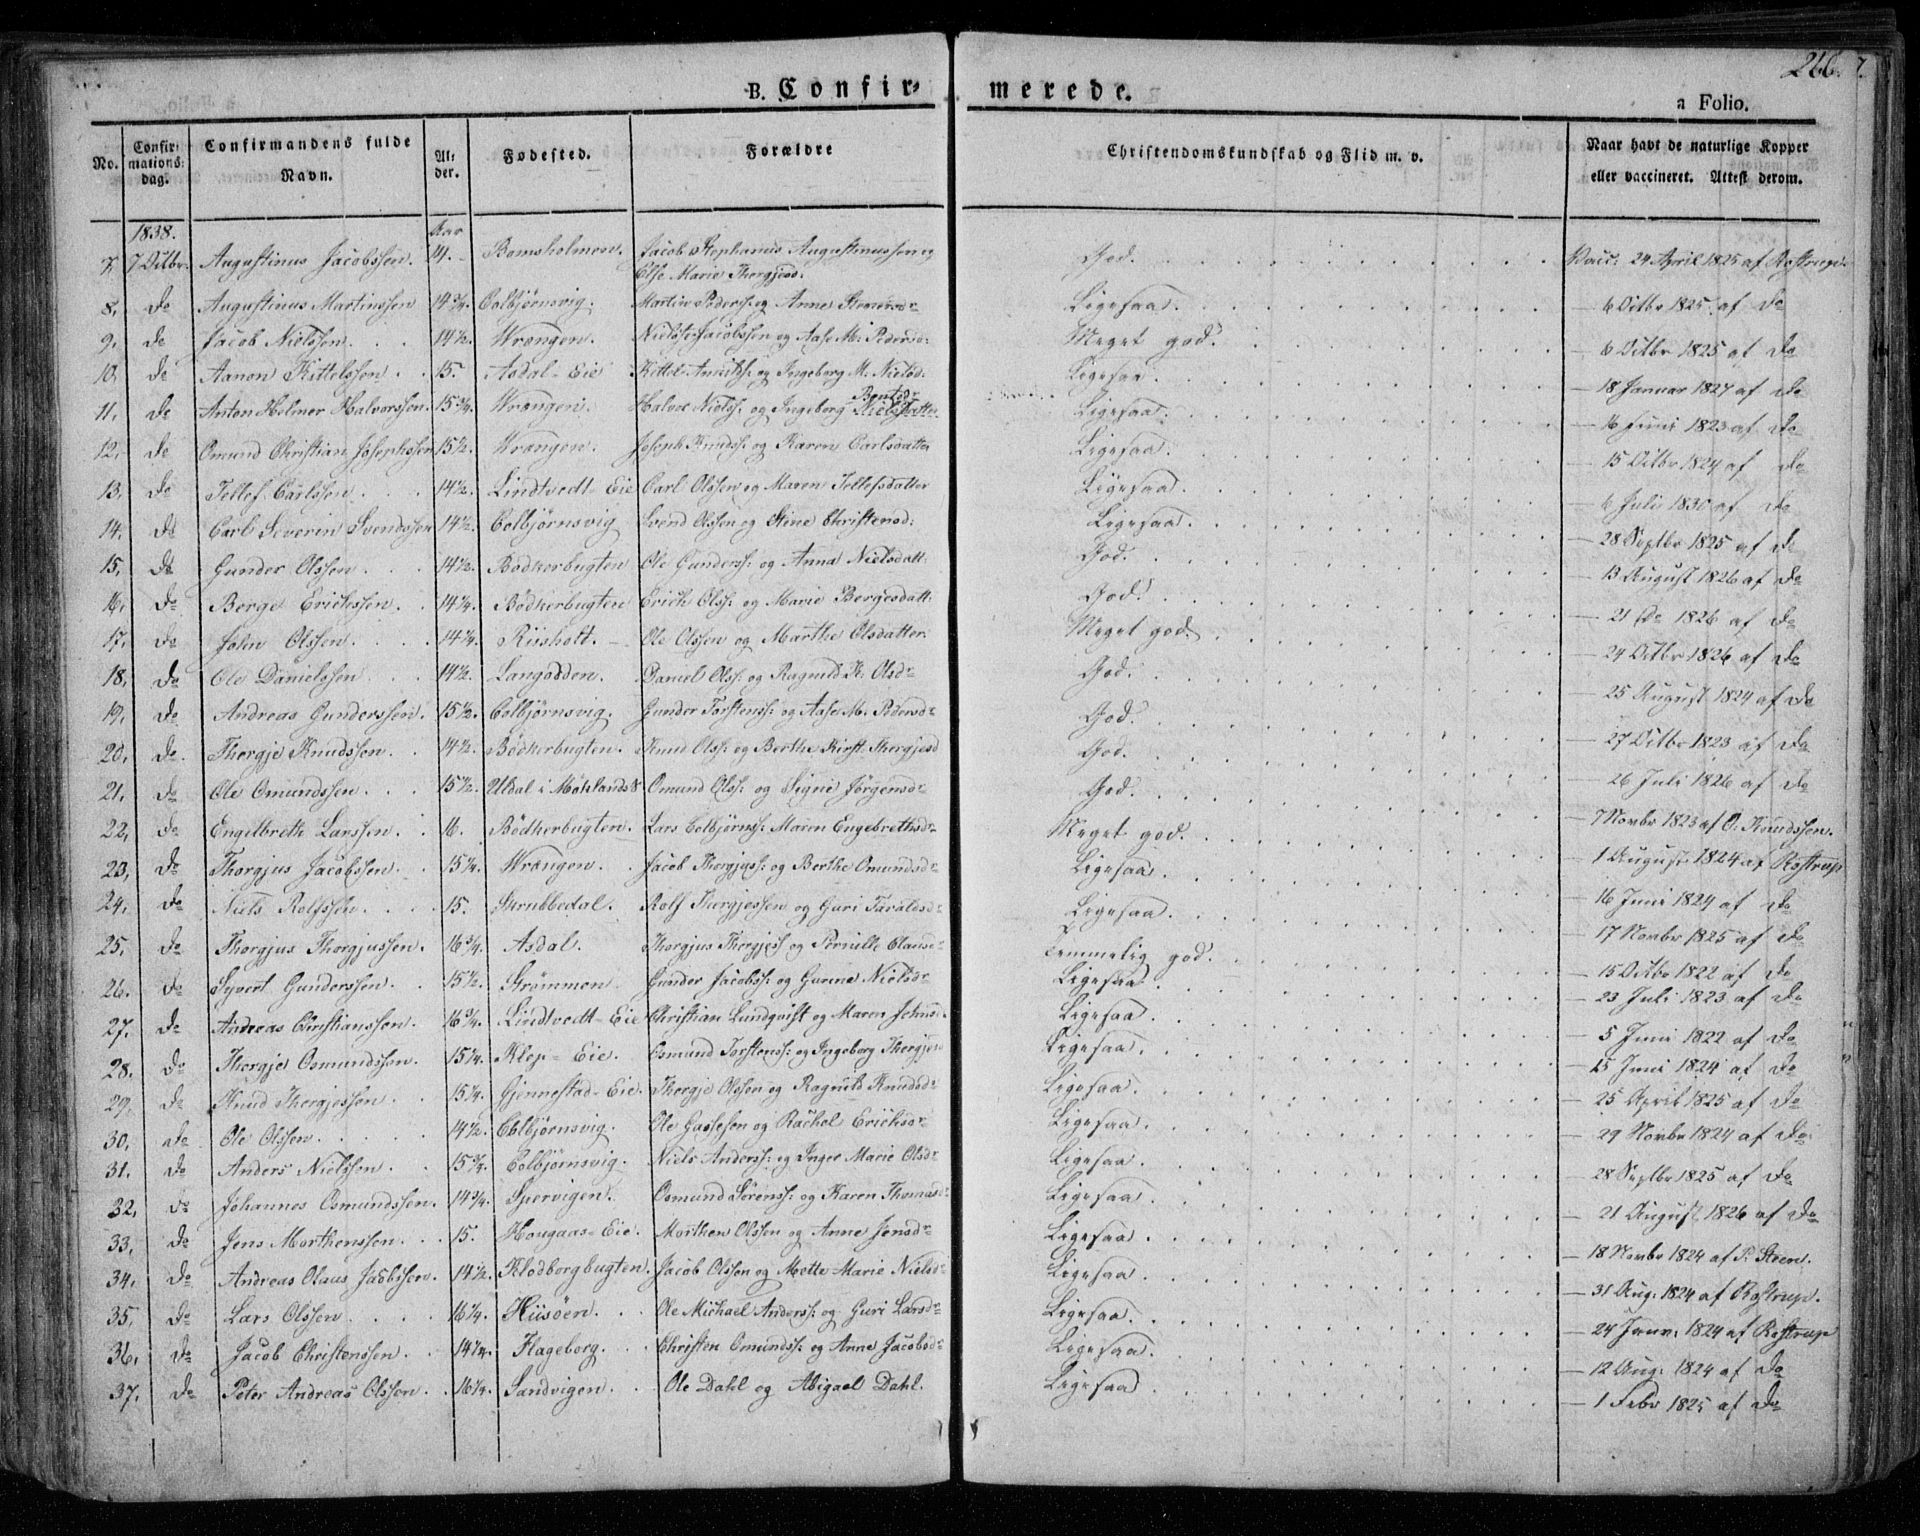 266.
B. Confirmerede.
a Folio.
No. Confirmations: dag. Confirmandens fulde Navn. Alder. Fødested. Forældre Christendomskundskab og Flid m. v. Naar havt de naturlige Kopper eller vaccineret. Attest derom.
1838. Aar
7. 7 Octbr. Augustinus Jacobssen. 14. Bomsholmen. Jacob Stephanus Augustinussen og Else Marie Thergjesd: God. Vacc: 24 April 1825 af Rostrup.
8. do Augustinus Martinssen 14 3/4. Colbjørnsvig. Martin Peders: og Anne Ligesaa. — 6 Octbr 1825 af do
9. do Jacob Nielssen. 14 1/2. Wrangen. Niels Jacobssen og Aase M: Pedersd: Meget god. — 6 Octbr 1825 af do
10. do Aanon Kittelssen. 15. Asdal-Eie Kittel og Ingeborg M. Nielsd: Ligesaa. — 18 Januar 1827 af do
11. do Anton Helmer Halvorssen. 15 3/4. Wrangen. Halvor Nielss: og Ingeborg Bentsdr Ligesaa. — 16 Juni 1823 af do
12. do Omund Christian Josephssen 15 1/2. Wrangen. Joseph Knudss: og Karen Carlsdatter Ligesaa. — 15 Octbr 1824 af do
13. do Tellef Carlssen. 14 1/2. Lindtvedt-Eie Carl Olssen og Maren Tellefsdatter Ligesaa. — 6 Juli 1830 af do
14. do Carl Severin Svendssen 14 1/2. Colbjørnsvig Svend Olssen og Stine Christensd: Ligesaa. — 28 Septbr 1825 af do
15. do Gunder Olssen. 14 1/2. Bødkerbugten Ole Gunderss: og Anna Nielsdatt: God. — 13 August 1826 af do
16. do Berge Erichssen. 14 1/4. Bødkerbugten Erich Olss: og Marie Bergesdatt: God. — 21 do 1826 af do
17. do John Olssen. 14 1/4. Riisholt. Ole Olssen og Marthe Olsdatter. Meget god. — 24 Octbr 1826 af do
18. do Ole Danielssen 14 1/2. Langodden. Daniel Olss: og Ragnild K. Olsdr God. — 25 August 1824 af do
19. do Andreas Gunderssen. 15 1/2. Colbjørnsvig. Gunder Torstenss: og Aase M: Pedersdr God. — 27 Octbr 1823 af do
20. do. Thergje Knudssen. 14 1/2. Bødkerbugten. Knud Olss: og Berthe Kirst. Thergjesd God. — 26 Juli 1826 af do
21. do Ole Omundssen. 15 1/2. Uldal i Moklands S Omund Olss: og Signe Jørgensdr God. — 7 Novbr 1823 af O. Knudssen.
22. do Engelbreth Larssen. 16. Bødkerbugten. Lars Colbjørnss: Maren Engebrethsdr Meget god. — 1 August 1824 af Rostrup
23. do Thorgjus Jacobssen. 15 1/4. Wrangen. Jacob Thorgjuss: og Berthe Omundsdr Ligesaa. — 16 Juni 1824 af do
24. do Niels Rolfssen. 15. Skrubbedal. Rolf Thergjessen og Guri Taraldsdr Ligesaa. — 17 Novbr 1825 af do
25. do Thorgjus Thorgjussen. 16 3/4. Asdal. Thorgjus Thorgjess og Pernille Clausdr Temmelig god. — 15 Octbr 1822 af do
26. do Syvert Gunderssen. 15 1/2. Strømmen. Gunder Jacobss: og Gunne Nielsdr Ligesaa. — 23 Juli 1823 af do
27. do Andreas Christianssen. 16 3/4. Lindtvedt-Eie Christian Lundqvist og Maren Johnsd: Ligesaa. — 5 Juni 1822 af do
28. do Thergje Osmundssen. 15 1/4. Klep-Eie. Osmund Torstenss: og Ingeborg Thergjesd Ligesaa. — 25 Juni 1824 af do
29. do Knud Thergjessen. 15 1/4. Gjennestad-Eie. Thergje Olssen og Ragnild Knudsdr Ligesaa. — 25 April 1825 af do
30. do Ole Olssen. 14 1/2. Colbjørnsvig. Ole Gassesen og Rachel Erichsdr Ligesaa. — 29 Novbr 1824 af do
31. do Anders Nielssen. 15 3/4. Colbjørnsvig. Niels Anderss: og Inger Marie Olsdr Ligesaa. — 28 Septbr 1825 af do
32. do Johannes Osmundssen. 14 3/4. Spervigen. Osmund Sørenss: og Karen Thomasdr Ligesaa. — 21 August 1826 af do
33. do Jens Morthenssen. 15. Hougaas-Eie. Morthen Olssen og Anne Jensdr Ligesaa. — 18 Novbr 1824 af P. Steen.
34. do Andreas Olaus Jacobssen. 14 1/2. Klodborgbugten. Jacob Olssen og Mette Marie Nielsdr Ligesaa. — 31 Aug: 1824 af Rostrup.
35. do Lars Olssen. 16 1/4. Hiisøen. Ole Michael Anderss: og Guri Larsdr Ligesaa. — 24 Janv: 1824 af Rostrup
36. do Jacob Christenssen. 14 1/4. Flageborg. Christen Omundss: og Anne Jacobsdr Ligesaa. — 12 Aug: 1824 af do
37. do Peter Andreas Olssen. 16 1/4. Sandvigen. Ole Dahl og Abigael Dahl. Ligesaa — 1 Febr 1825 af do